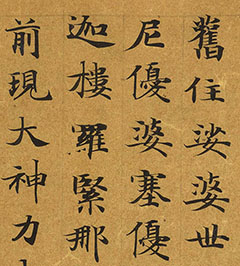 舊住娑婆世
尼優婆塞優
迦樓羅緊那
前現大神力